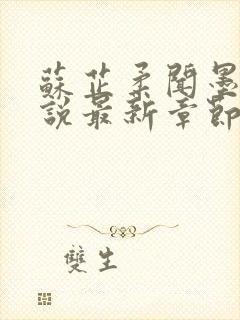 蘇芷柔聞墨
說最新章節
雙生